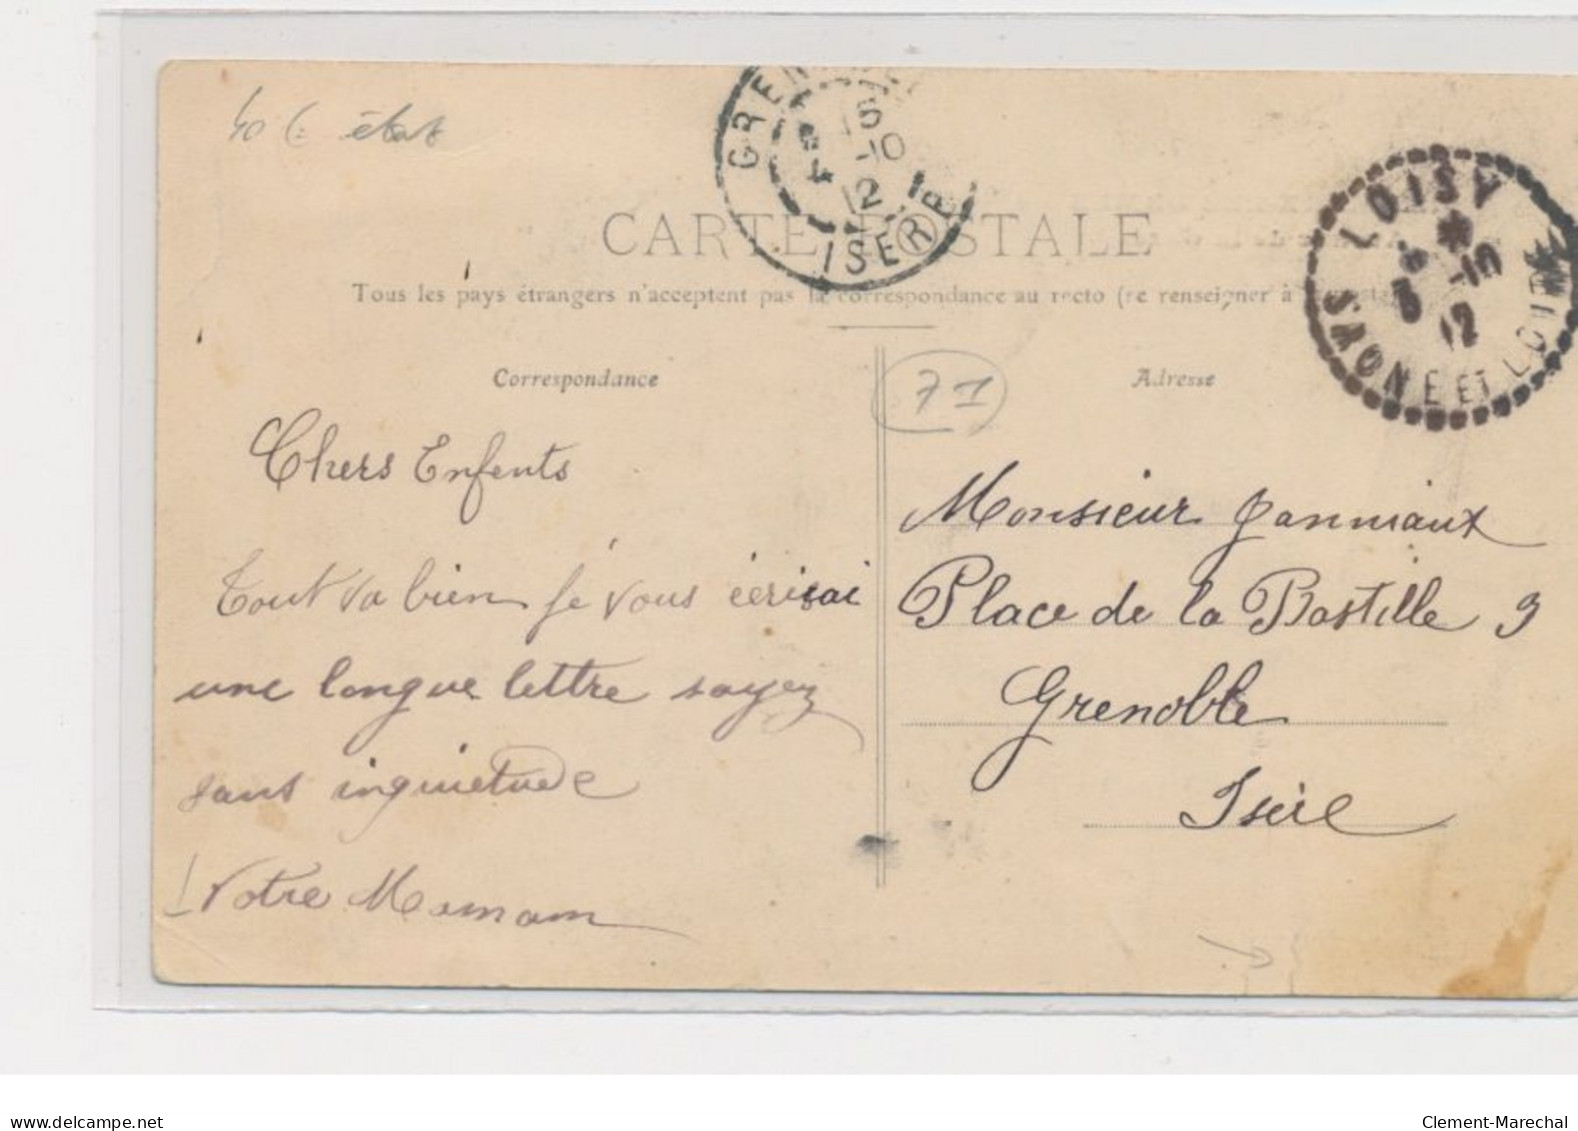 40 € état
GREN
15
-10
12
ISERE
LOISY
-10
12
SAONE ET LOIRE
CARTE POSTALE
Tous les pays étrangers n'acceptent pas la correspondance au recto (se renseigner à la poste)
Correspondance
Adresse
71
Chers Enfents
Tout va bien Je vous écrisai
une longue lettre soyez
sans inquietude
Votre Maman
Monsieur Janniaux
Place de la Bastille 9
Grenoble
Isère
www.delcampe.net
Clement-Marechal